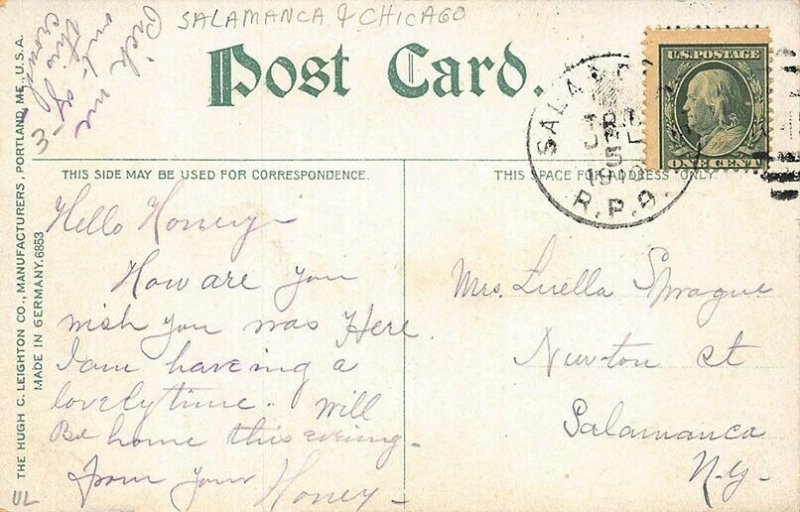 SALAMANCA & CHICAGO
Pick me
out of
this
crowd
3-
Post Card.
U.S. POSTAGE
ONE CENT
SALAM
R.P.O.
THIS SIDE MAY BE USED FOR CORRESPONDENCE.
THIS SPACE FOR ADDRESS ONLY.
THE HUGH C. LEIGHTON CO., MANUFACTURERS, PORTLAND, ME., U.S.A.
MADE IN GERMANY. 6853
Hello Honey-
How are you
wish you was Here.
I am haveing a
lovely time. Will
Be home this evening-
from your Honey-
Mrs. Luella Sprague
Newton st
Salamanca
N.Y-
UL